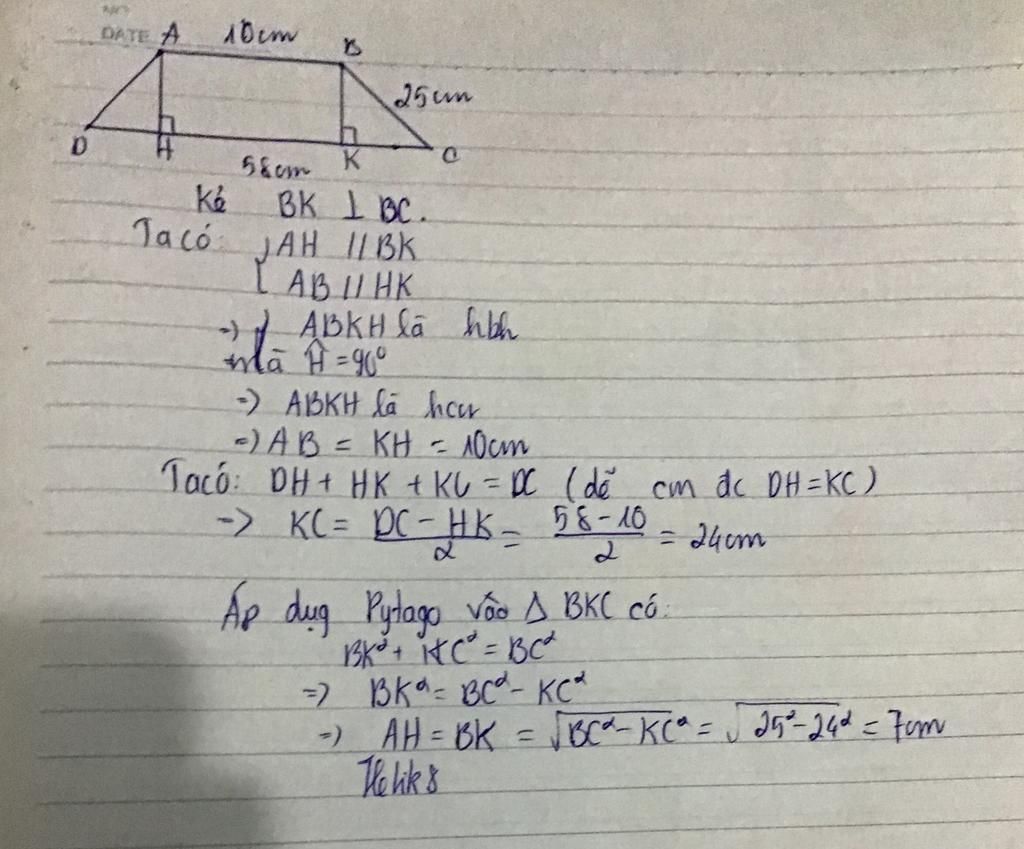 NO
DATE
A 10cm B
25cm
D H K C
58cm
Kẻ BK ⊥ BC.
Ta có: { AH // BK
AB // HK
=> ABKH là hbh
mà Ĥ = 90°
=> ABKH là hcn
=> AB = KH = 10cm
Ta có: DH + HK + KC = DC (dễ cm đc DH = KC)
=> KC = (DC - HK)/2 = (58 - 10)/2 = 24cm
Áp dụg Pytago vào Δ BKC có:
BK² + KC² = BC²
=> BK² = BC² - KC²
=> AH = BK = √(BC² - KC²) = √(25² - 24²) = 7cm